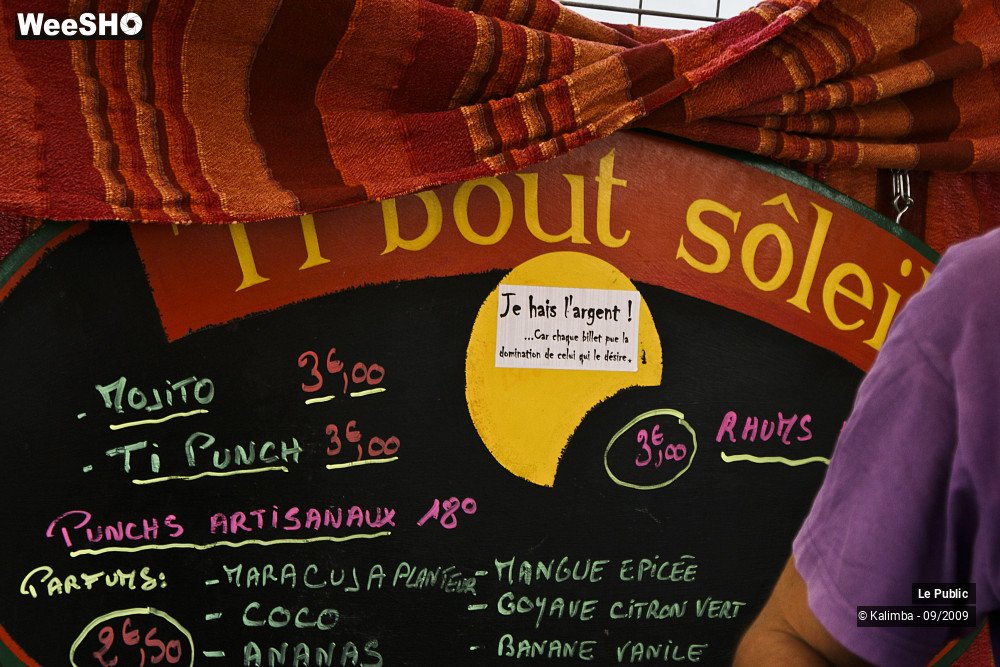 WeeSHO
Ti bout sôleil
Je hais l'argent !
...Car chaque billet pue la
domination de celui qui le désire.
- MOJITO 3€,00
- Ti PUNCH 3€,00
3€,00 RHUMS
PUNCHS ARTISANAUX 18°
PARFUMS:
- MARACUJA PLANTEUR
- COCO
- ANANAS
- MANGUE EPICÉE
- GOYAVE CITRON VERT
- BANANE VANILE
2€,50
Le Public
© Kalimba - 09/2009